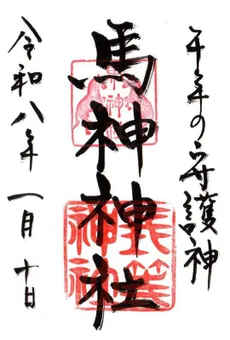 午年の守護神
馬神神社
長等神社
令和八年 一月十日